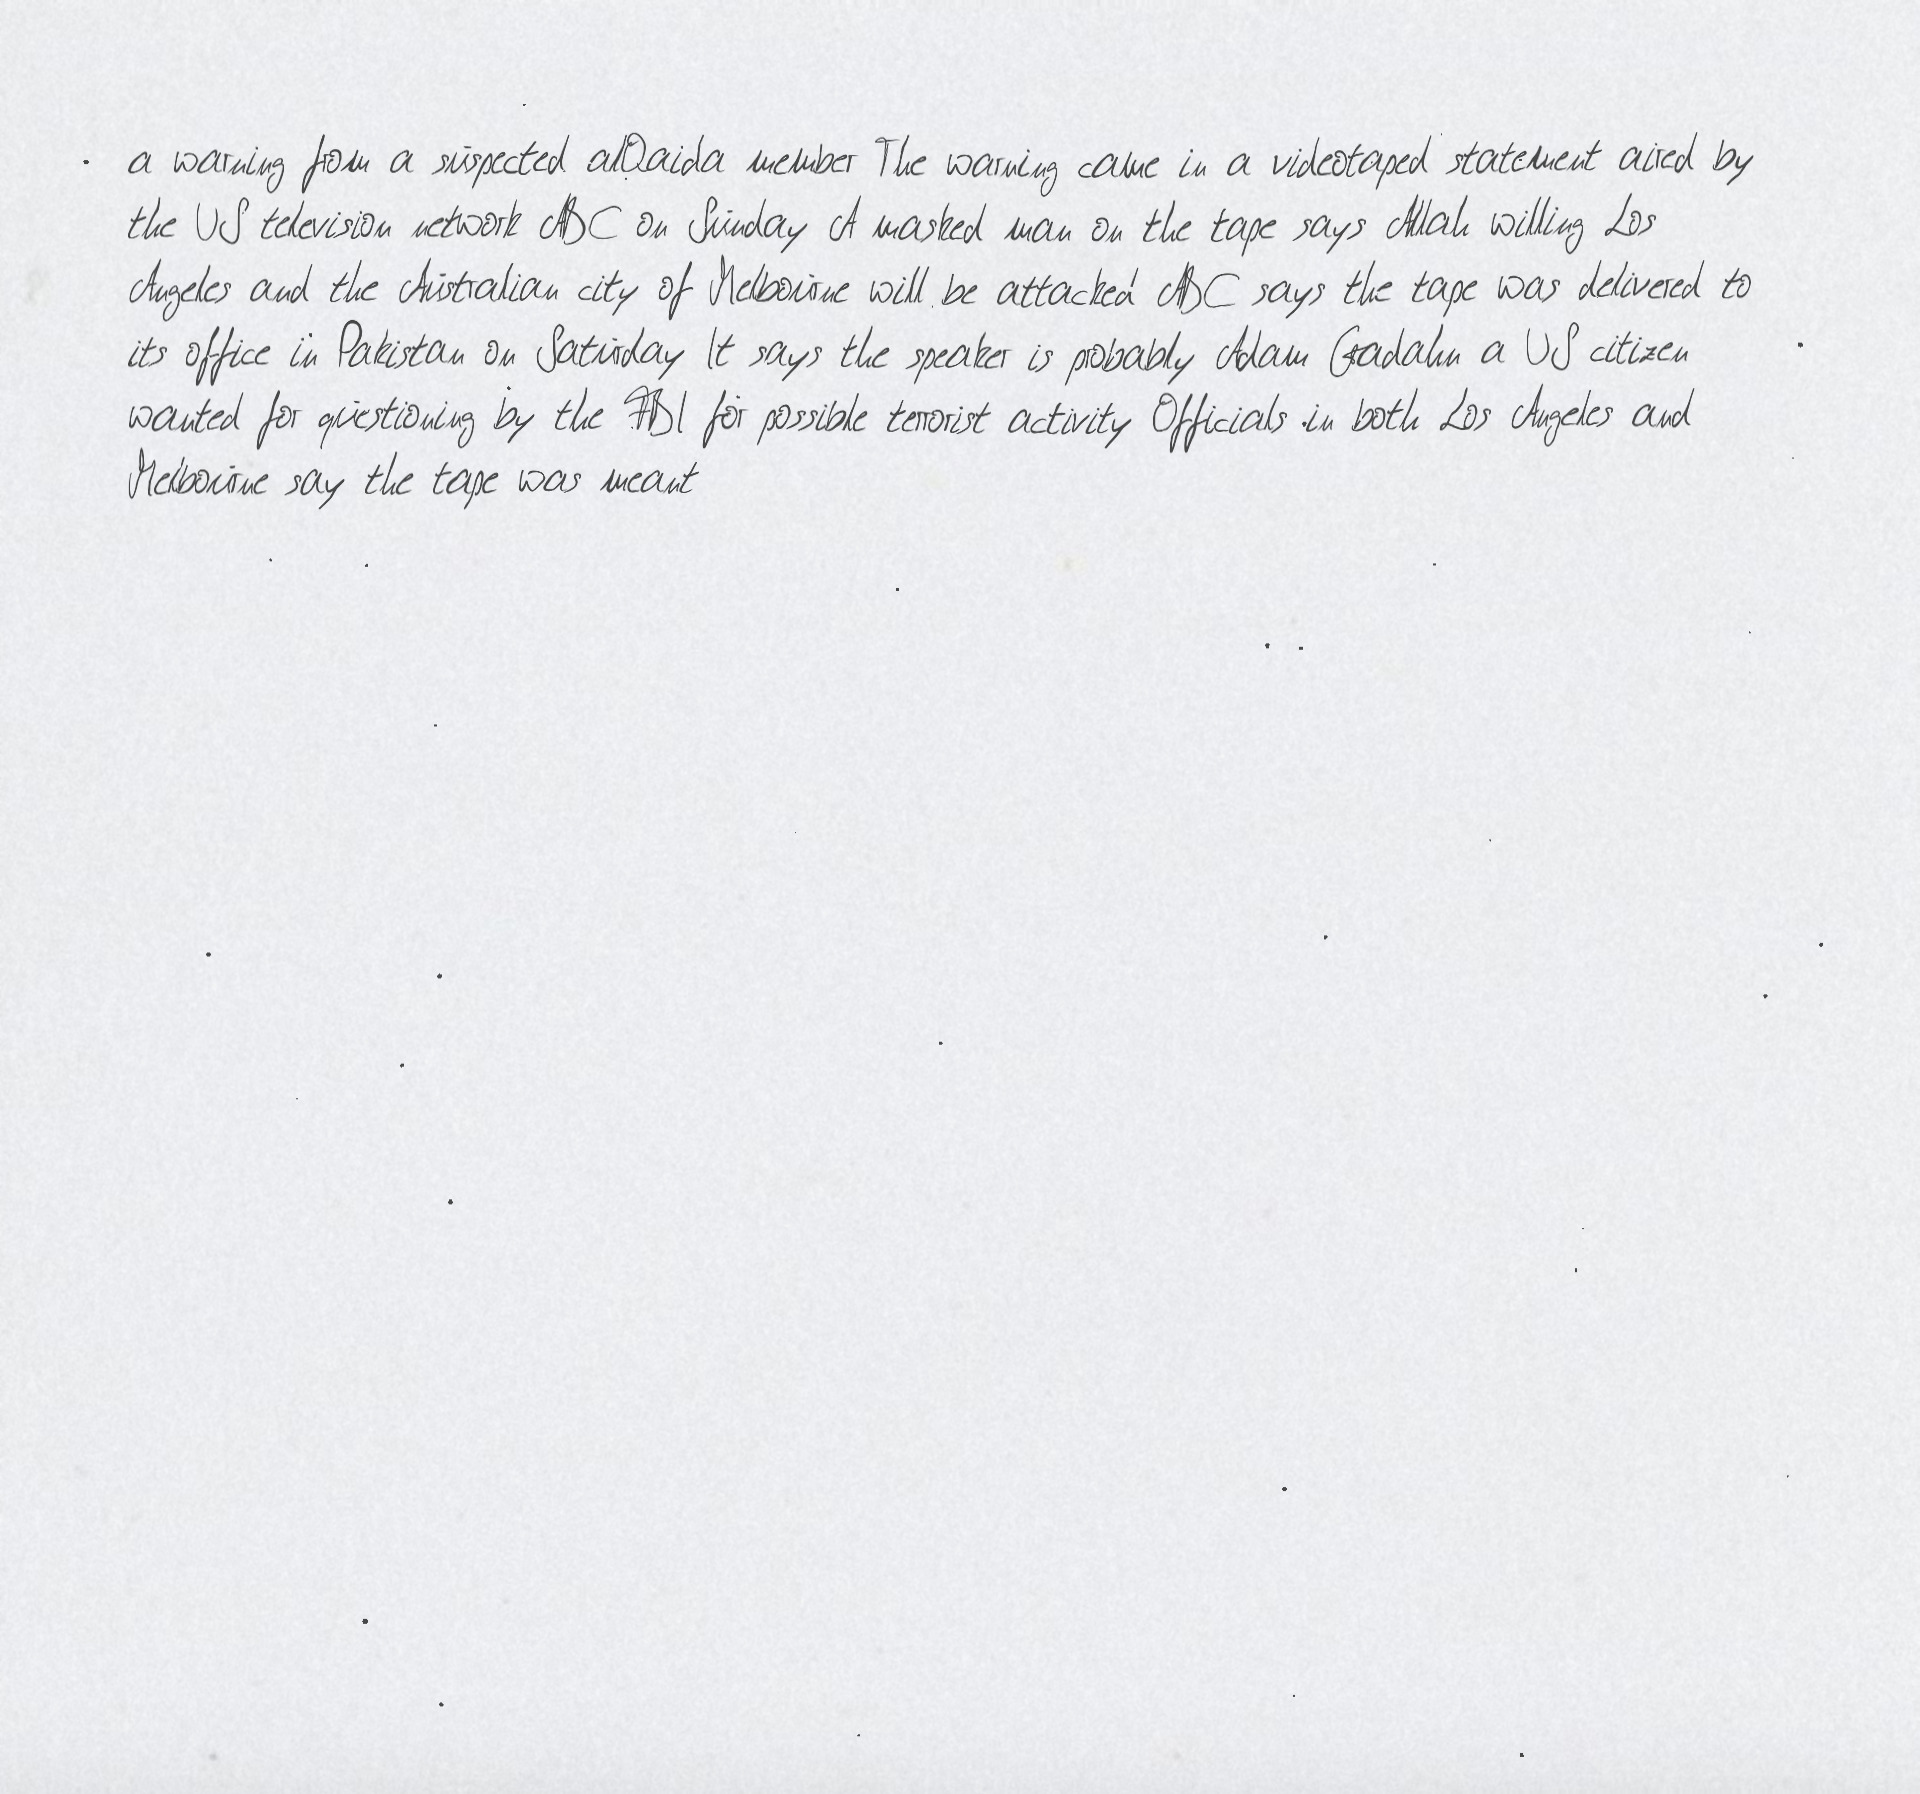 a warning from a suspected alQaida member The warning came in a videotaped statement aired by
the US television network ABC on Sunday A masked man on the tape says Allah willing Los
Angeles and the Australian city of Melbourne will be attacked ABC says the tape was delivered to
its office in Pakistan on Saturday It says the speaker is probably Adam Gadahn a US citizen
wanted for questioning by the FBI for possible terrorist activity Officials in both Los Angeles and
Melbourne say the tape was meant